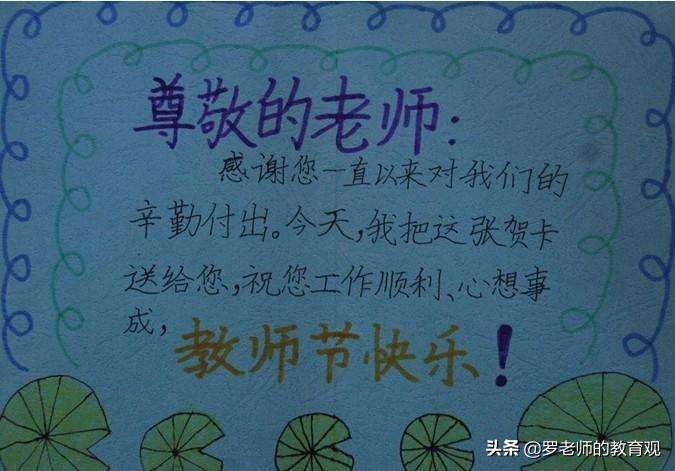 尊敬的老师:
感谢您一直以来对我们的
辛勤付出。今天,我把这张贺卡
送给您,祝您工作顺利、心想事
成,
教师节快乐!
头条 @罗老师的教育观